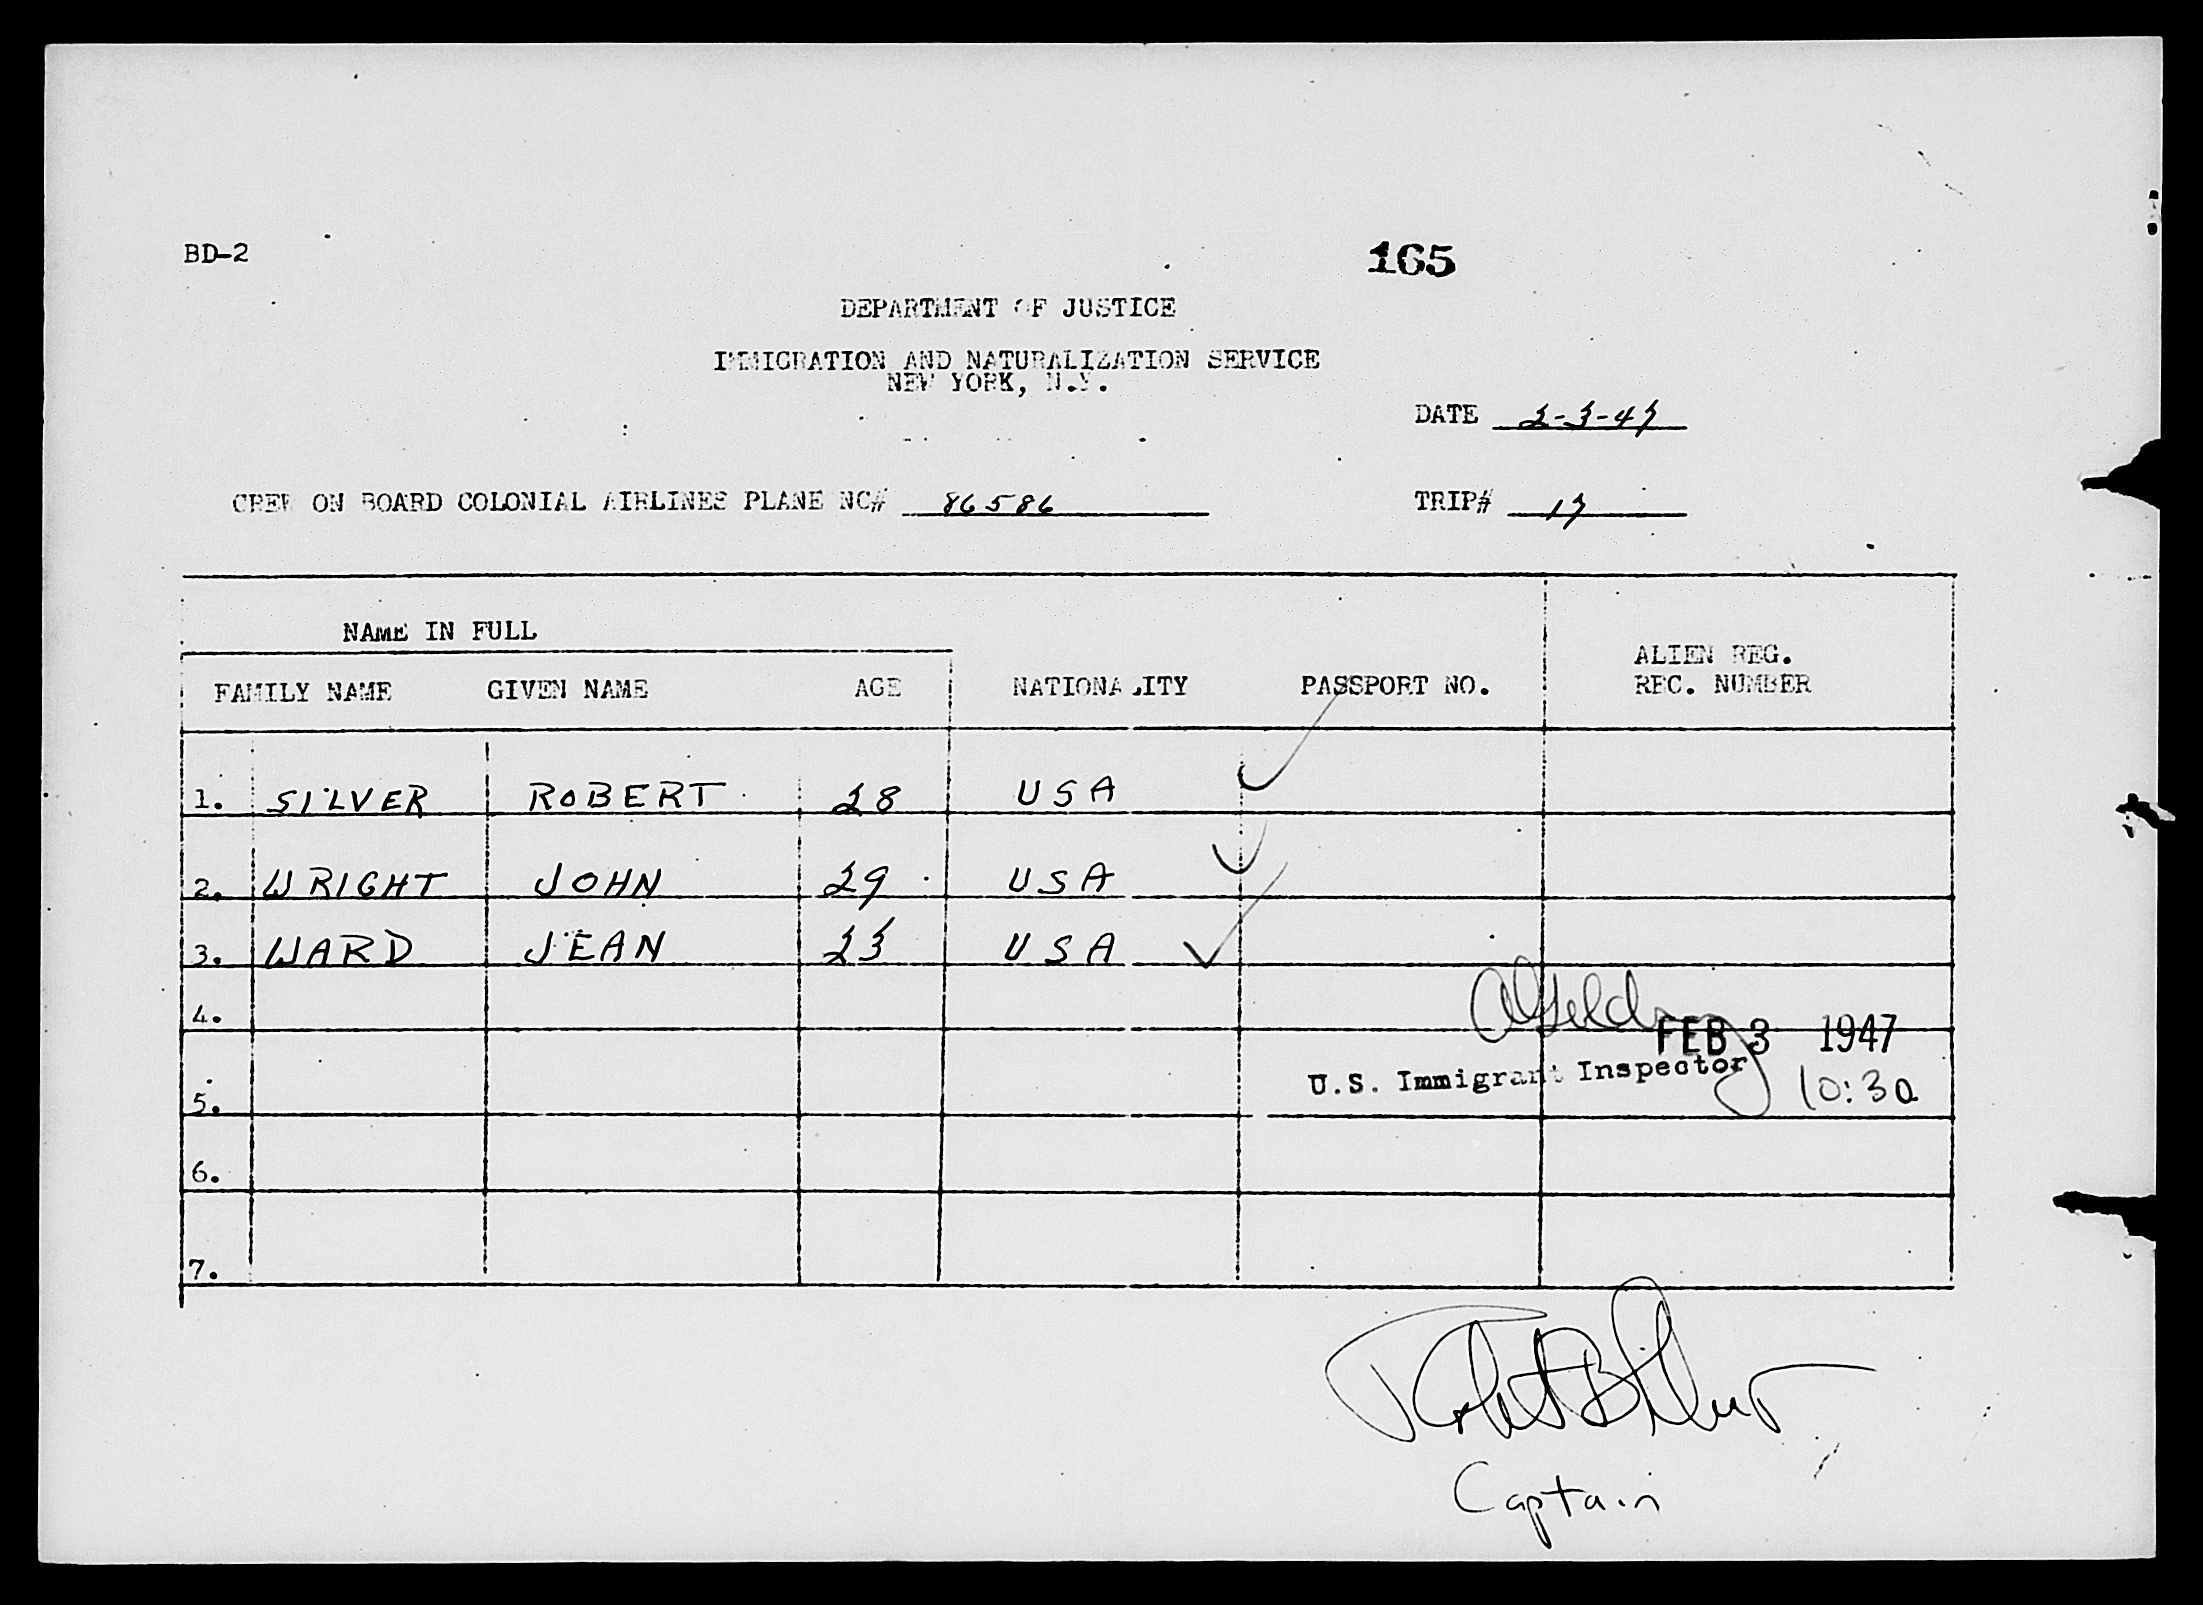 BD-2
165
DEPARTMENT OF JUSTICE
IMMIGRATION AND NATURALIZATION SERVICE
NEW YORK, N.Y.
DATE 2-3-47
CREW ON BOARD COLONIAL AIRLINES PLANE NC# 86586 TRIP# 17
NAME IN FULL
FAMILY NAME GIVEN NAME AGE NATIONALITY PASSPORT NO. ALIEN REG. REC. NUMBER
1. SILVER ROBERT 28 USA
2. WRIGHT JOHN 29 USA
3. WARD JEAN 23 USA
4.
FEB 3 1947
U.S. Immigrant Inspector 10:30
5.
6.
7.
Robert B Silver
Captain